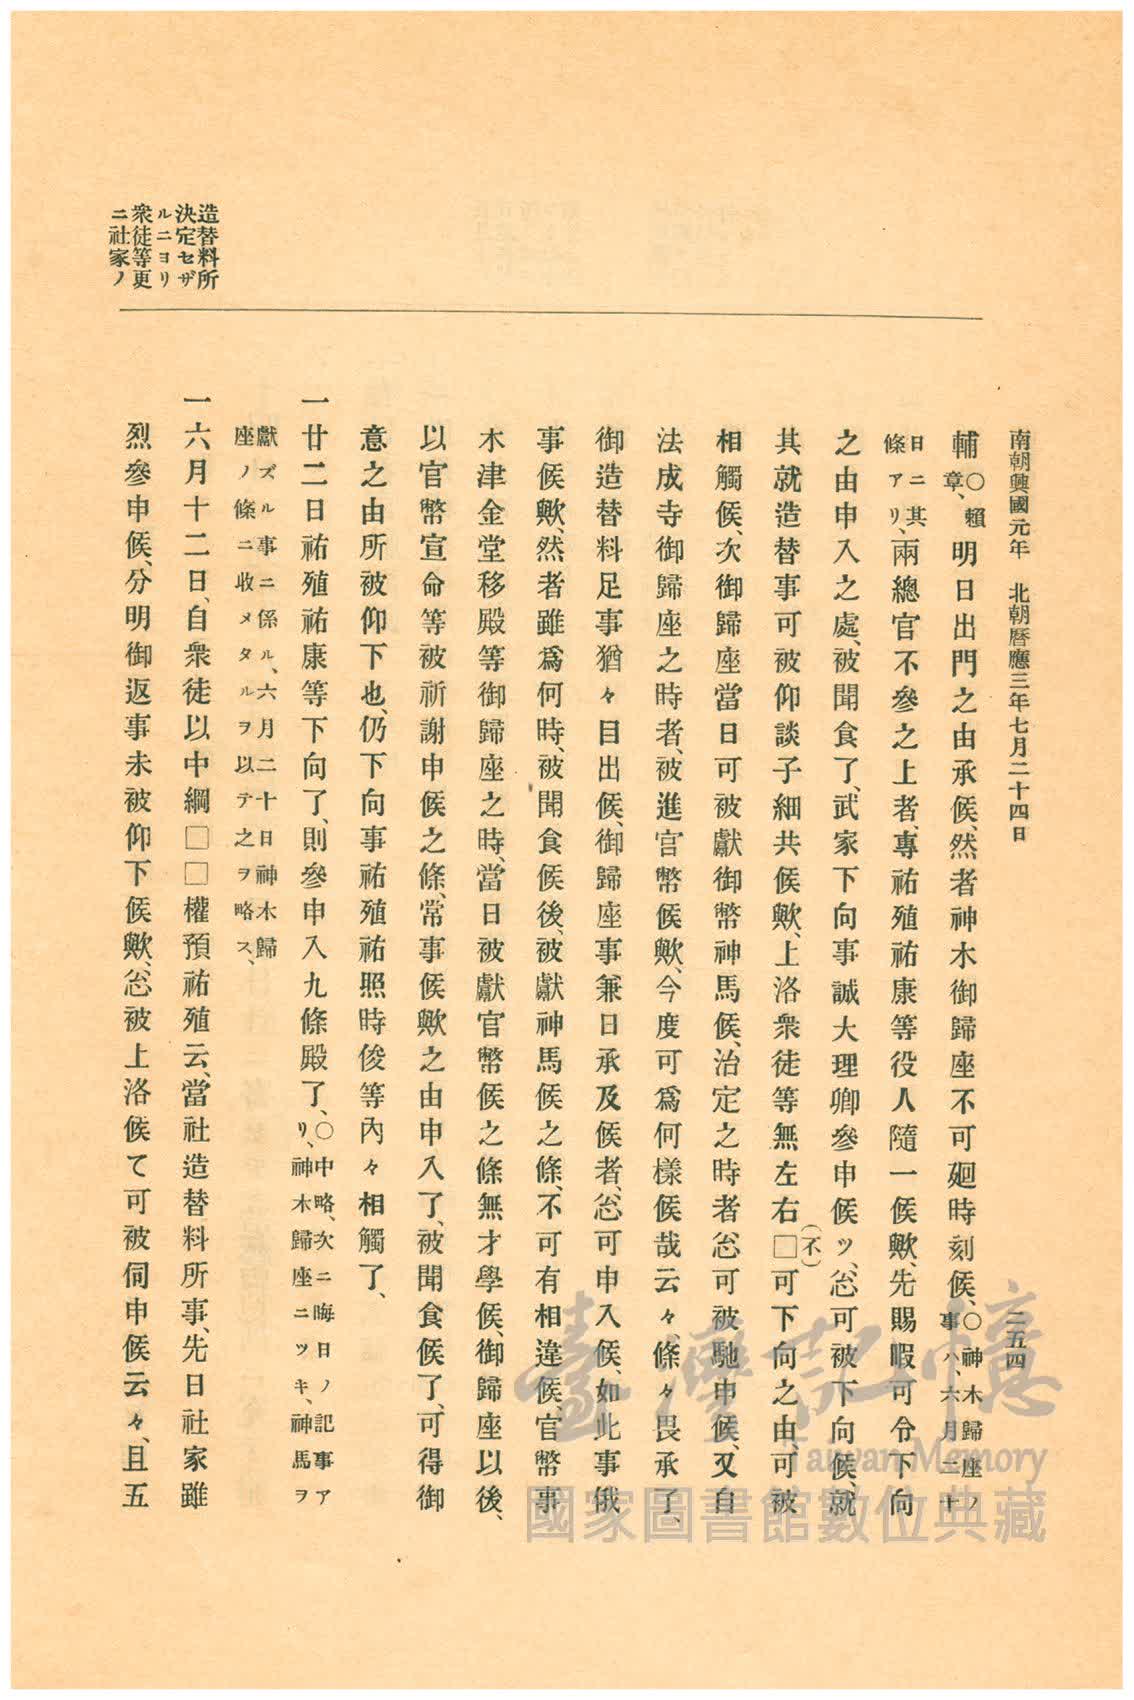 南朝興國元年　北朝曆應三年七月二十四日　二五四
輔〇賴章、明日出門之由承候、然者神木御歸座不可廻時刻候、〇神木歸座ノ事ハ、六月二十
日ニ其條アリ、兩總官不參之上者、專祐殖祐康等役人隨一候歟、先賜暇可令下向
之由申入之處、被聞食了、武家下向事誠大理卿參申候ッ、忩可被下向候、就
其就造替事可被仰談子細共候歟、上洛衆徒等無左右□(不)可下向之由、可被
相觸候、次御歸座當日可被獻御幣神馬候、治定之時者忩可被馳申候、又自
法成寺御歸座之時者、被進官幣候歟、今度可爲何樣候哉云々、條々畏承了、
御造替料足事猶々目出候、御歸座事兼日承及候者、忩可申入候、如此事俄
事候歟、然者雖爲何時、被聞食候後、被獻神馬候之條、不可有相違候、官幣事
木津金堂移殿等御歸座之時、當日被獻官幣候之條無才學候、御歸座以後、
以官幣宣命等被祈謝申候之條、常事候歟之由申入了、被聞食候了、可得御
意之由所被仰下也、仍下向事祐殖祐照時俊等內々相觸了、
一廿二日祐殖祐康等下向了、則參申入九條殿了、〇中略、次ニ晦日ノ記事アリ、神木歸座ニツキ、神馬ヲ
獻ズル事ニ係ル、六月二十日神木歸座ノ條ニ收メタルヲ以テ之ヲ略ス、
一六月十二日、自衆徒以中綱□□權預祐殖云、當社造替料所事、先日社家雖
烈參申候、分明御返事未被仰下候歟、忩被上洛候て可被伺申候云々、且五
造替料所
決定セザ
ルニヨリ
衆徒等更
ニ社家ノ
臺灣記憶
Taiwan Memory
國家圖書館數位典藏